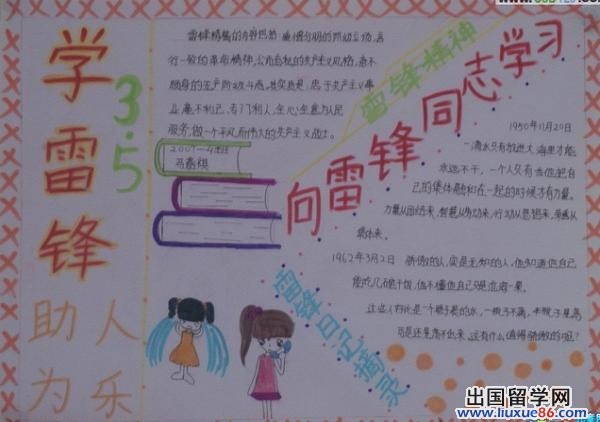 学雷锋
3.5
助人
为乐
雷锋精神的内容包括:爱憎分明的阶级立场,言
行一致的革命精神,公而忘私的共产主义风格,奋不
顾身的无产阶级斗志。其实质是:忠于共产主义事
业,毫不利己,专门利人,全心全意为人民
服务,做一个平凡而伟大的共产主义战士。
雷锋精神
向雷锋同志学习
1950年11月20日
一滴水只有放进大海里才能
永远不干,一个人只有当他把自
己的集体融和在一起的时候才有力量。
力量从团结来,智慧从劳动来,行动从思想来,荣誉从
集体来。
1962年3月2日 骄傲的人,实是无知的人,他知道他自己
能吃几碗干饭,他不懂他自己只是沧海一粟。
这些人好比是一个瓶子装的水,一瓶子不满,半瓶子晃荡
可是还是晃不出来,这有什么值得骄傲的呢?
雷锋日记摘录
出国留学网
www.liuxue86.com